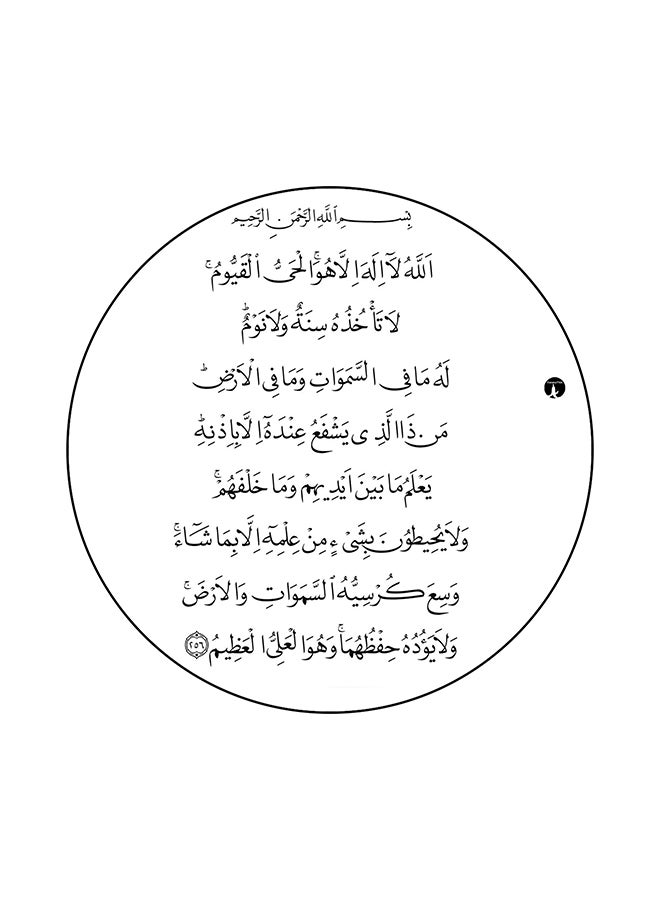 بِسْمِ اللَّهِ الرَّحْمَنِ الرَّحِيمِ
اَللَّهُ لَآ اِلَهَ اِلَّا هُوَۚ اَلْحَىُّ الْقَيُّومُۚ
لَا تَأْخُذُهُ سِنَةٌ وَلَا نَوْمٌۜ
لَهُ مَا فِى السَّمَوَاتِ وَمَا فِى الْاَرْضِۜ
مَنْ ذَا الَّذِى يَشْفَعُ عِنْدَهُٓ اِلَّا بِاِذْنِهِۜ
يَعْلَمُ مَا بَيْنَ اَيْدِيهِمْ وَمَا خَلْفَهُمْۚ
وَلَا يُحِيطُونَ بِشَىْءٍ مِنْ عِلْمِهِٓ اِلَّا بِمَا شَٓاءَۚ
وَسِعَ كُرْسِيُّهُ السَّمَوَاتِ وَالْاَرْضَۚ
وَلَا يَؤُدُهُ حِفْظُهُمَاۚ وَهُوَ الْعَلِىُّ الْعَظِيمُ ٢٥٦